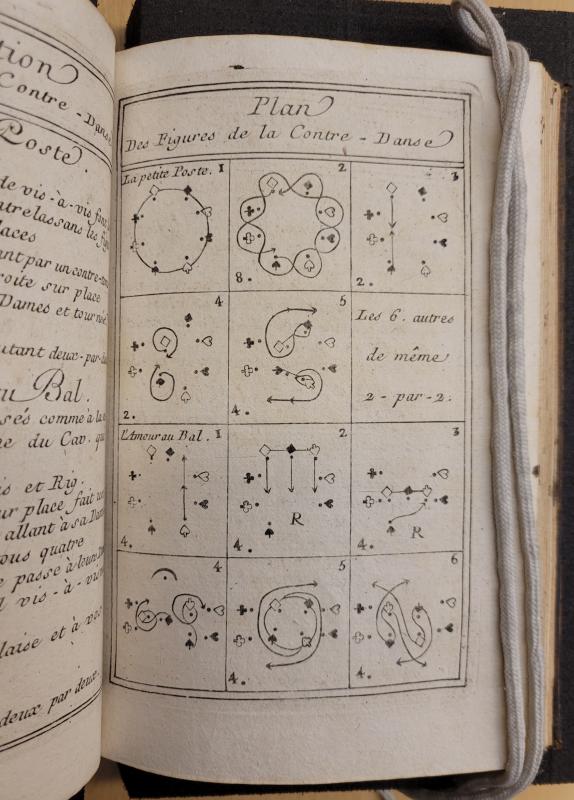 tion
Contre - Dans
Poste.
de vis - à - vis
entrelassans les
laces
ant par un contre-
roite sur place
Dames et tourne
utant deux-par-
au Bal.
sés comme à la
ne du Cav. qu
is et Rig.
ur place fait un
allant à sa Dam
tous quatre
e passe à leurs
l vis - à - vis
laise et à
deux par deux.
Plan
Des Figures de la Contre - Danse
La petite Poste. 1
2
3
8.
2.
4
5
Les 6. autres
de même
2 - par - 2.
2.
4.
L'Amour au Bal. 1
2
3
R
R
4.
4.
4.
4
5
6
4.
4.